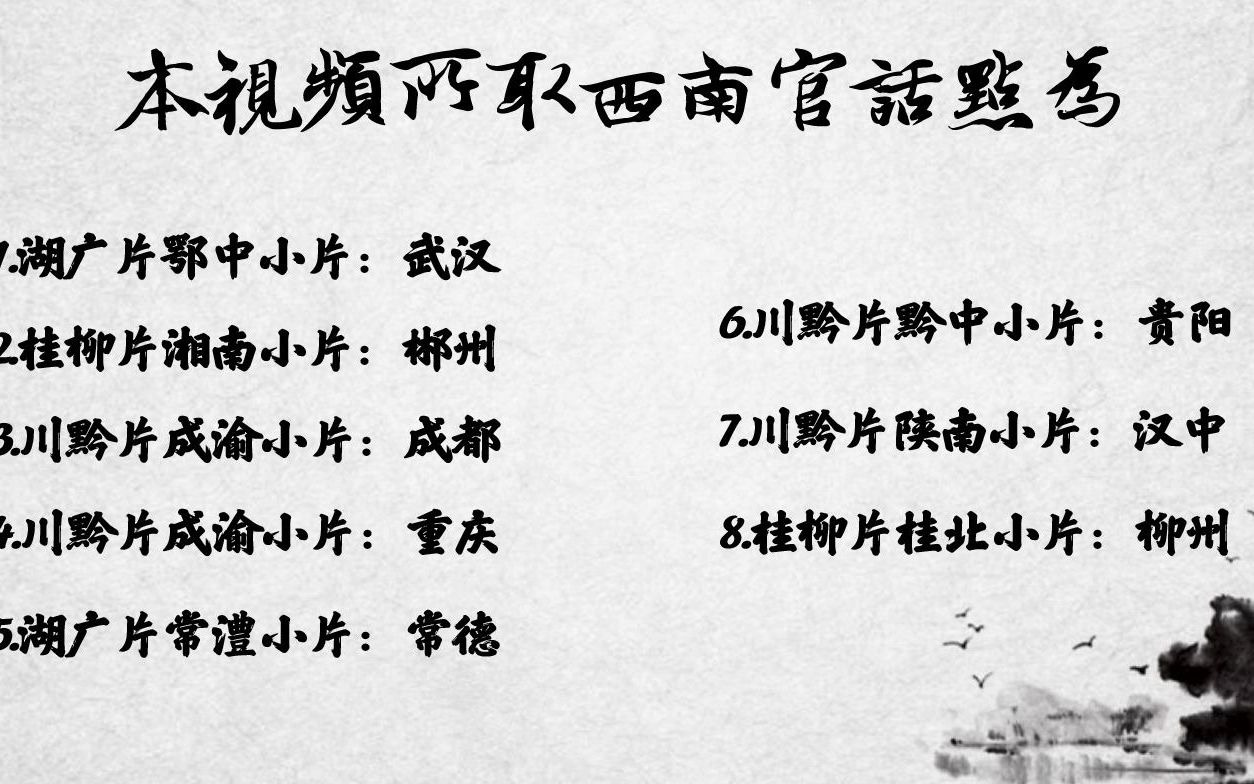 本視頻所取西南官話點為
1.湖广片鄂中小片：武汉
2.桂柳片湘南小片：郴州
3.川黔片成渝小片：成都
4.川黔片成渝小片：重庆
5.湖广片常澧小片：常德
6.川黔片黔中小片：贵阳
7.川黔片陕南小片：汉中
8.桂柳片桂北小片：柳州